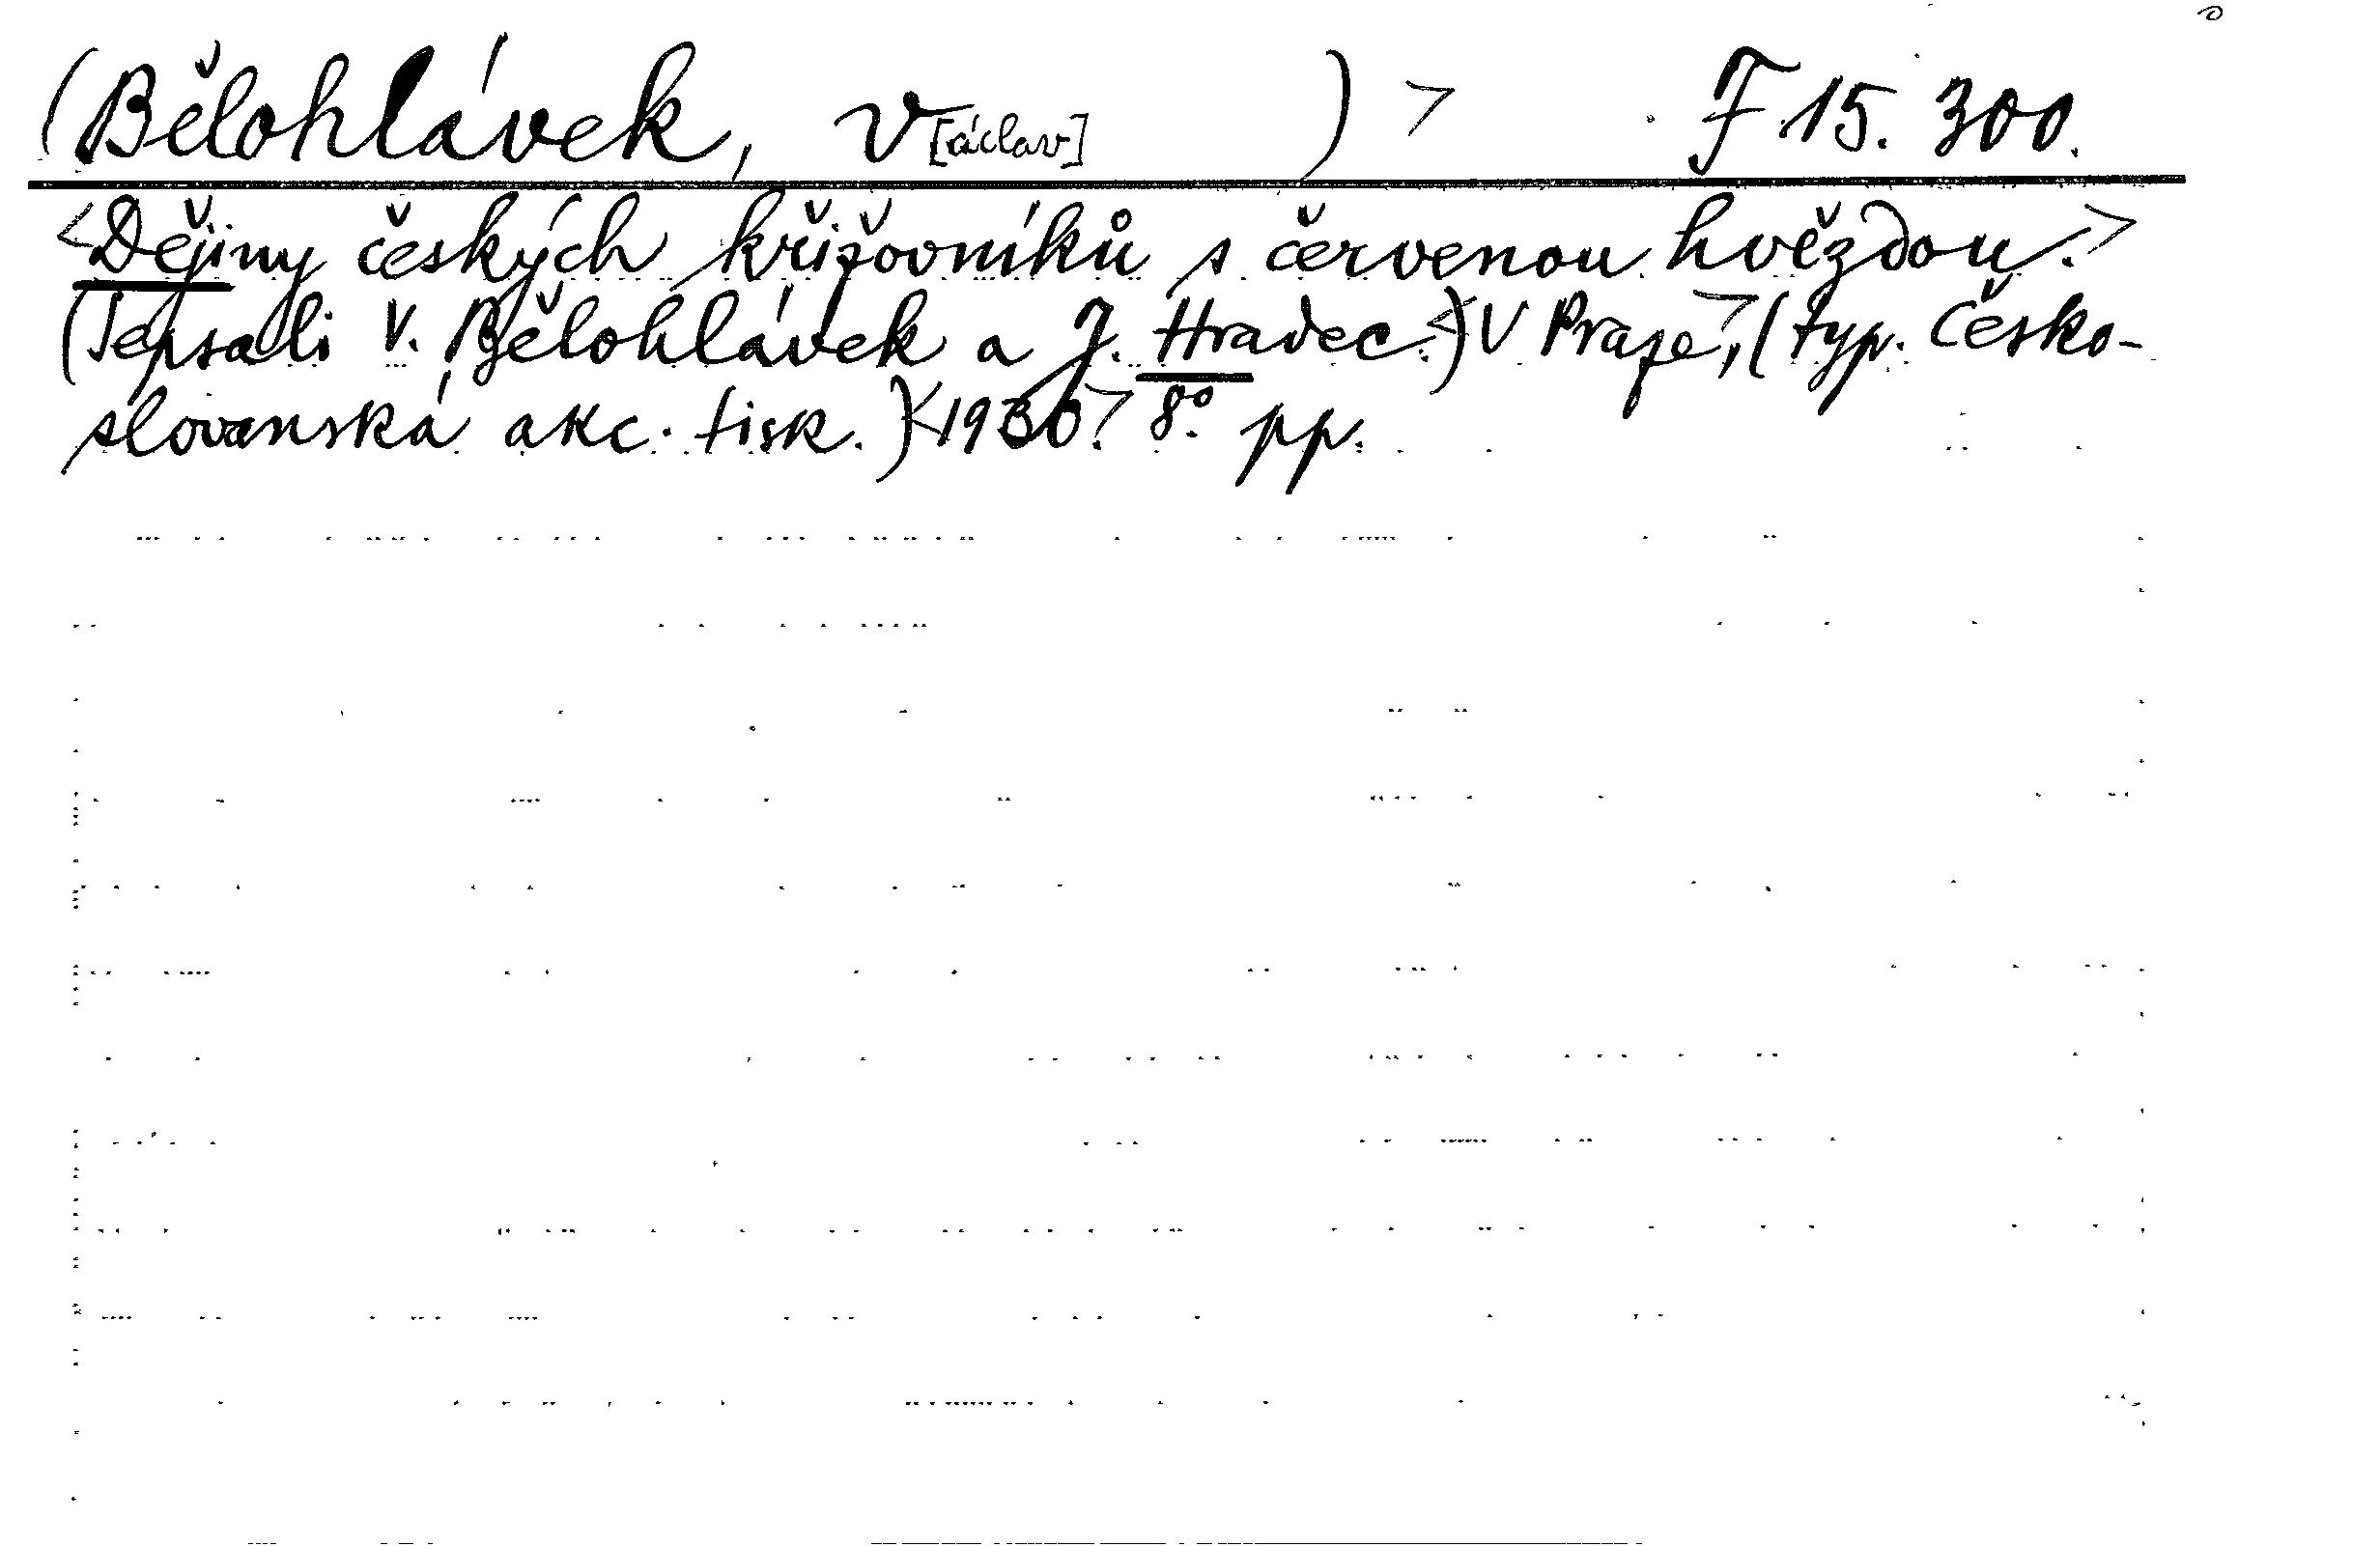 (Bělohlávek, V[áclav] ) > F 15. 300.
<Dějiny českých křižovníků s červenou hvězdou.>
(Sepsali V. Bělohlávek a J. Hradec.)< V Praze>, (typ. Česko-
slovanská akc. tisk.)< 1930.> 8°. pp.